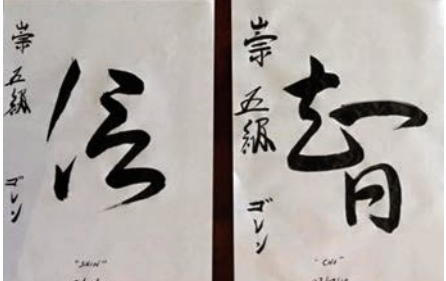 信
崇 五級 ゴレン
"SHIN"
智
崇 五級 ゴレン
"CHI"